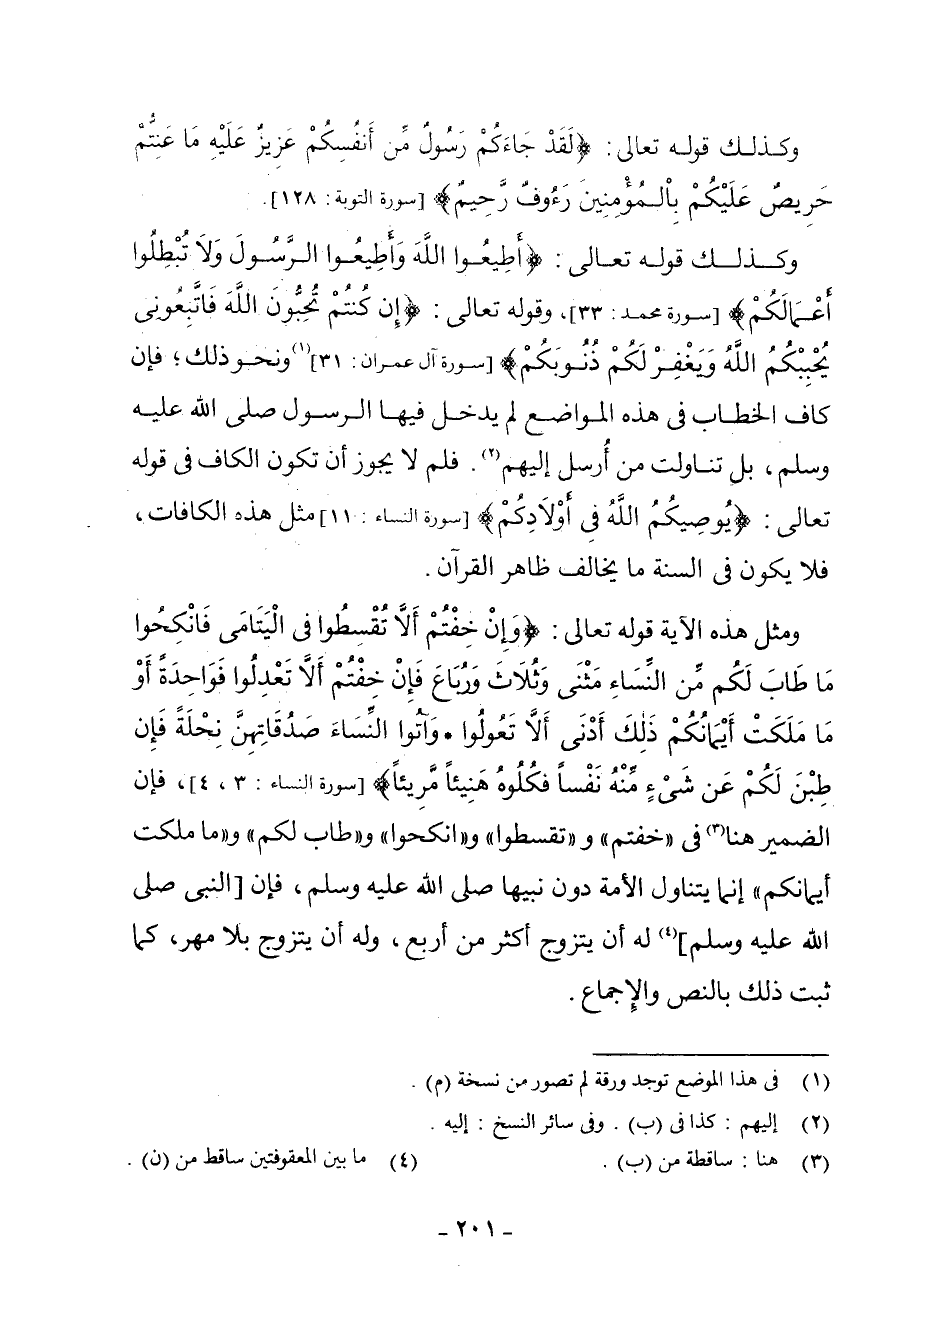 وكذلك قوله تعالى: ﴿لَقَدْ جَاءَكُمْ رَسُولٌ مِّن أَنفُسِكُمْ عَزِيزٌ عَلَيْهِ مَا عَنِتُّمْ
حَرِيصٌ عَلَيْكُمْ بِالْمُؤْمِنِينَ رَءُوفٌ رَّحِيمٌ﴾ [سورة التوبة: ١٢٨].
وكذلك قوله تعالى: ﴿أَطِيعُوا اللَّهَ وَأَطِيعُوا الرَّسُولَ وَلَا تُبْطِلُوا
أَعْمَالَكُمْ﴾ [سورة محمد: ٣٣]، وقوله تعالى: ﴿إِن كُنتُمْ تُحِبُّونَ اللَّهَ فَاتَّبِعُونِى
يُحْبِبْكُمُ اللَّهُ وَيَغْفِرْ لَكُمْ ذُنُوبَكُمْ﴾ [سورة آل عمران: ٣١](١) ونحو ذلك؛ فإن
كاف الخطاب فى هذه المواضع لم يدخل فيها الرسول صلى الله عليه
وسلم، بل تناولت من أُرسل إليهم(٢). فلم لا يجوز أن تكون الكاف فى قوله
تعالى: ﴿يُوصِيكُمُ اللَّهُ فِى أَوْلَادِكُمْ﴾ [سورة النساء: ١١] مثل هذه الكافات،
فلا يكون فى السنة ما يخالف ظاهر القرآن.
ومثل هذه الآية قوله تعالى: ﴿وَإِنْ خِفْتُمْ أَلَّا تُقْسِطُوا فِى الْيَتَامَى فَانْكِحُوا
مَا طَابَ لَكُم مِّن النِّسَاءِ مَثْنَى وَثُلَاثَ وَرُبَاعَ فَإِنْ خِفْتُمْ أَلَّا تَعْدِلُوا فَوَاحِدَةً أَوْ
مَا مَلَكَتْ أَيْمَانُكُمْ ذَلِكَ أَدْنَى أَلَّا تَعُولُوا • وَآتُوا النِّسَاءَ صَدُقَاتِهِنَّ نِحْلَةً فَإِن
طِبْنَ لَكُمْ عَن شَىْءٍ مِّنْهُ نَفْساً فَكُلُوهُ هَنِيئاً مَّرِيئاً﴾ [سورة النساء: ٣، ٤]، فإن
الضمير هنا(٣) فى «خفتم» و «تقسطوا» و«انكحوا» و«طاب لكم» و«ما ملكت
أيمانكم» إنما يتناول الأمة دون نبيها صلى الله عليه وسلم، فإن [النبى صلى
الله عليه وسلم](٤) له أن يتزوج أكثر من أربع، وله أن يتزوج بلا مهر، كما
ثبت ذلك بالنص والإجماع.
(١) فى هذا الموضع توجد ورقة لم تصور من نسخة (م).
(٢) إليهم: كذا فى (ب). وفى سائر النسخ: إليه.
(٣) هنا: ساقطة من (ب). (٤) ما بين المعقوفتين ساقط من (ن).
- ٢٠١ -